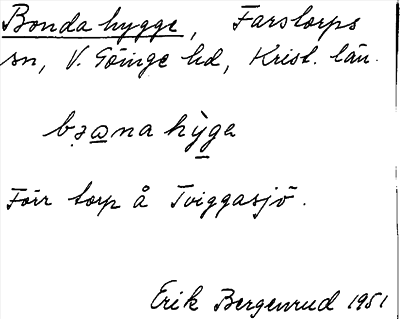 Bonda hygge, Farstorps
sn, V. Göinge hd, Krist. län.
hỳga
Förr torp å Tviggasjö.
Erik Bergenrud 1951